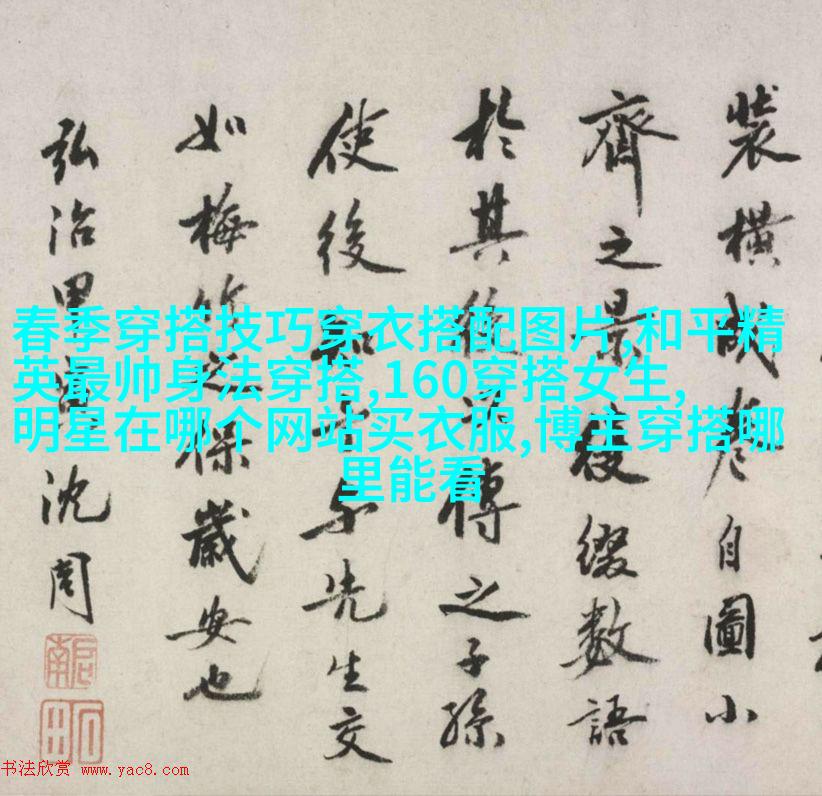 春季穿搭技巧穿衣搭配图片,和平精
英最帅身法穿搭,160穿搭女生,
明星在哪个网站买衣服,博主穿搭哪
里能看
裝橫成卷自圖小
齊之景復綴數語
於其後傳之子孫
使後知先生交
如梅竹之保歲安也
弘治甲沈周
啓南
书法欣赏 www.yac8.com